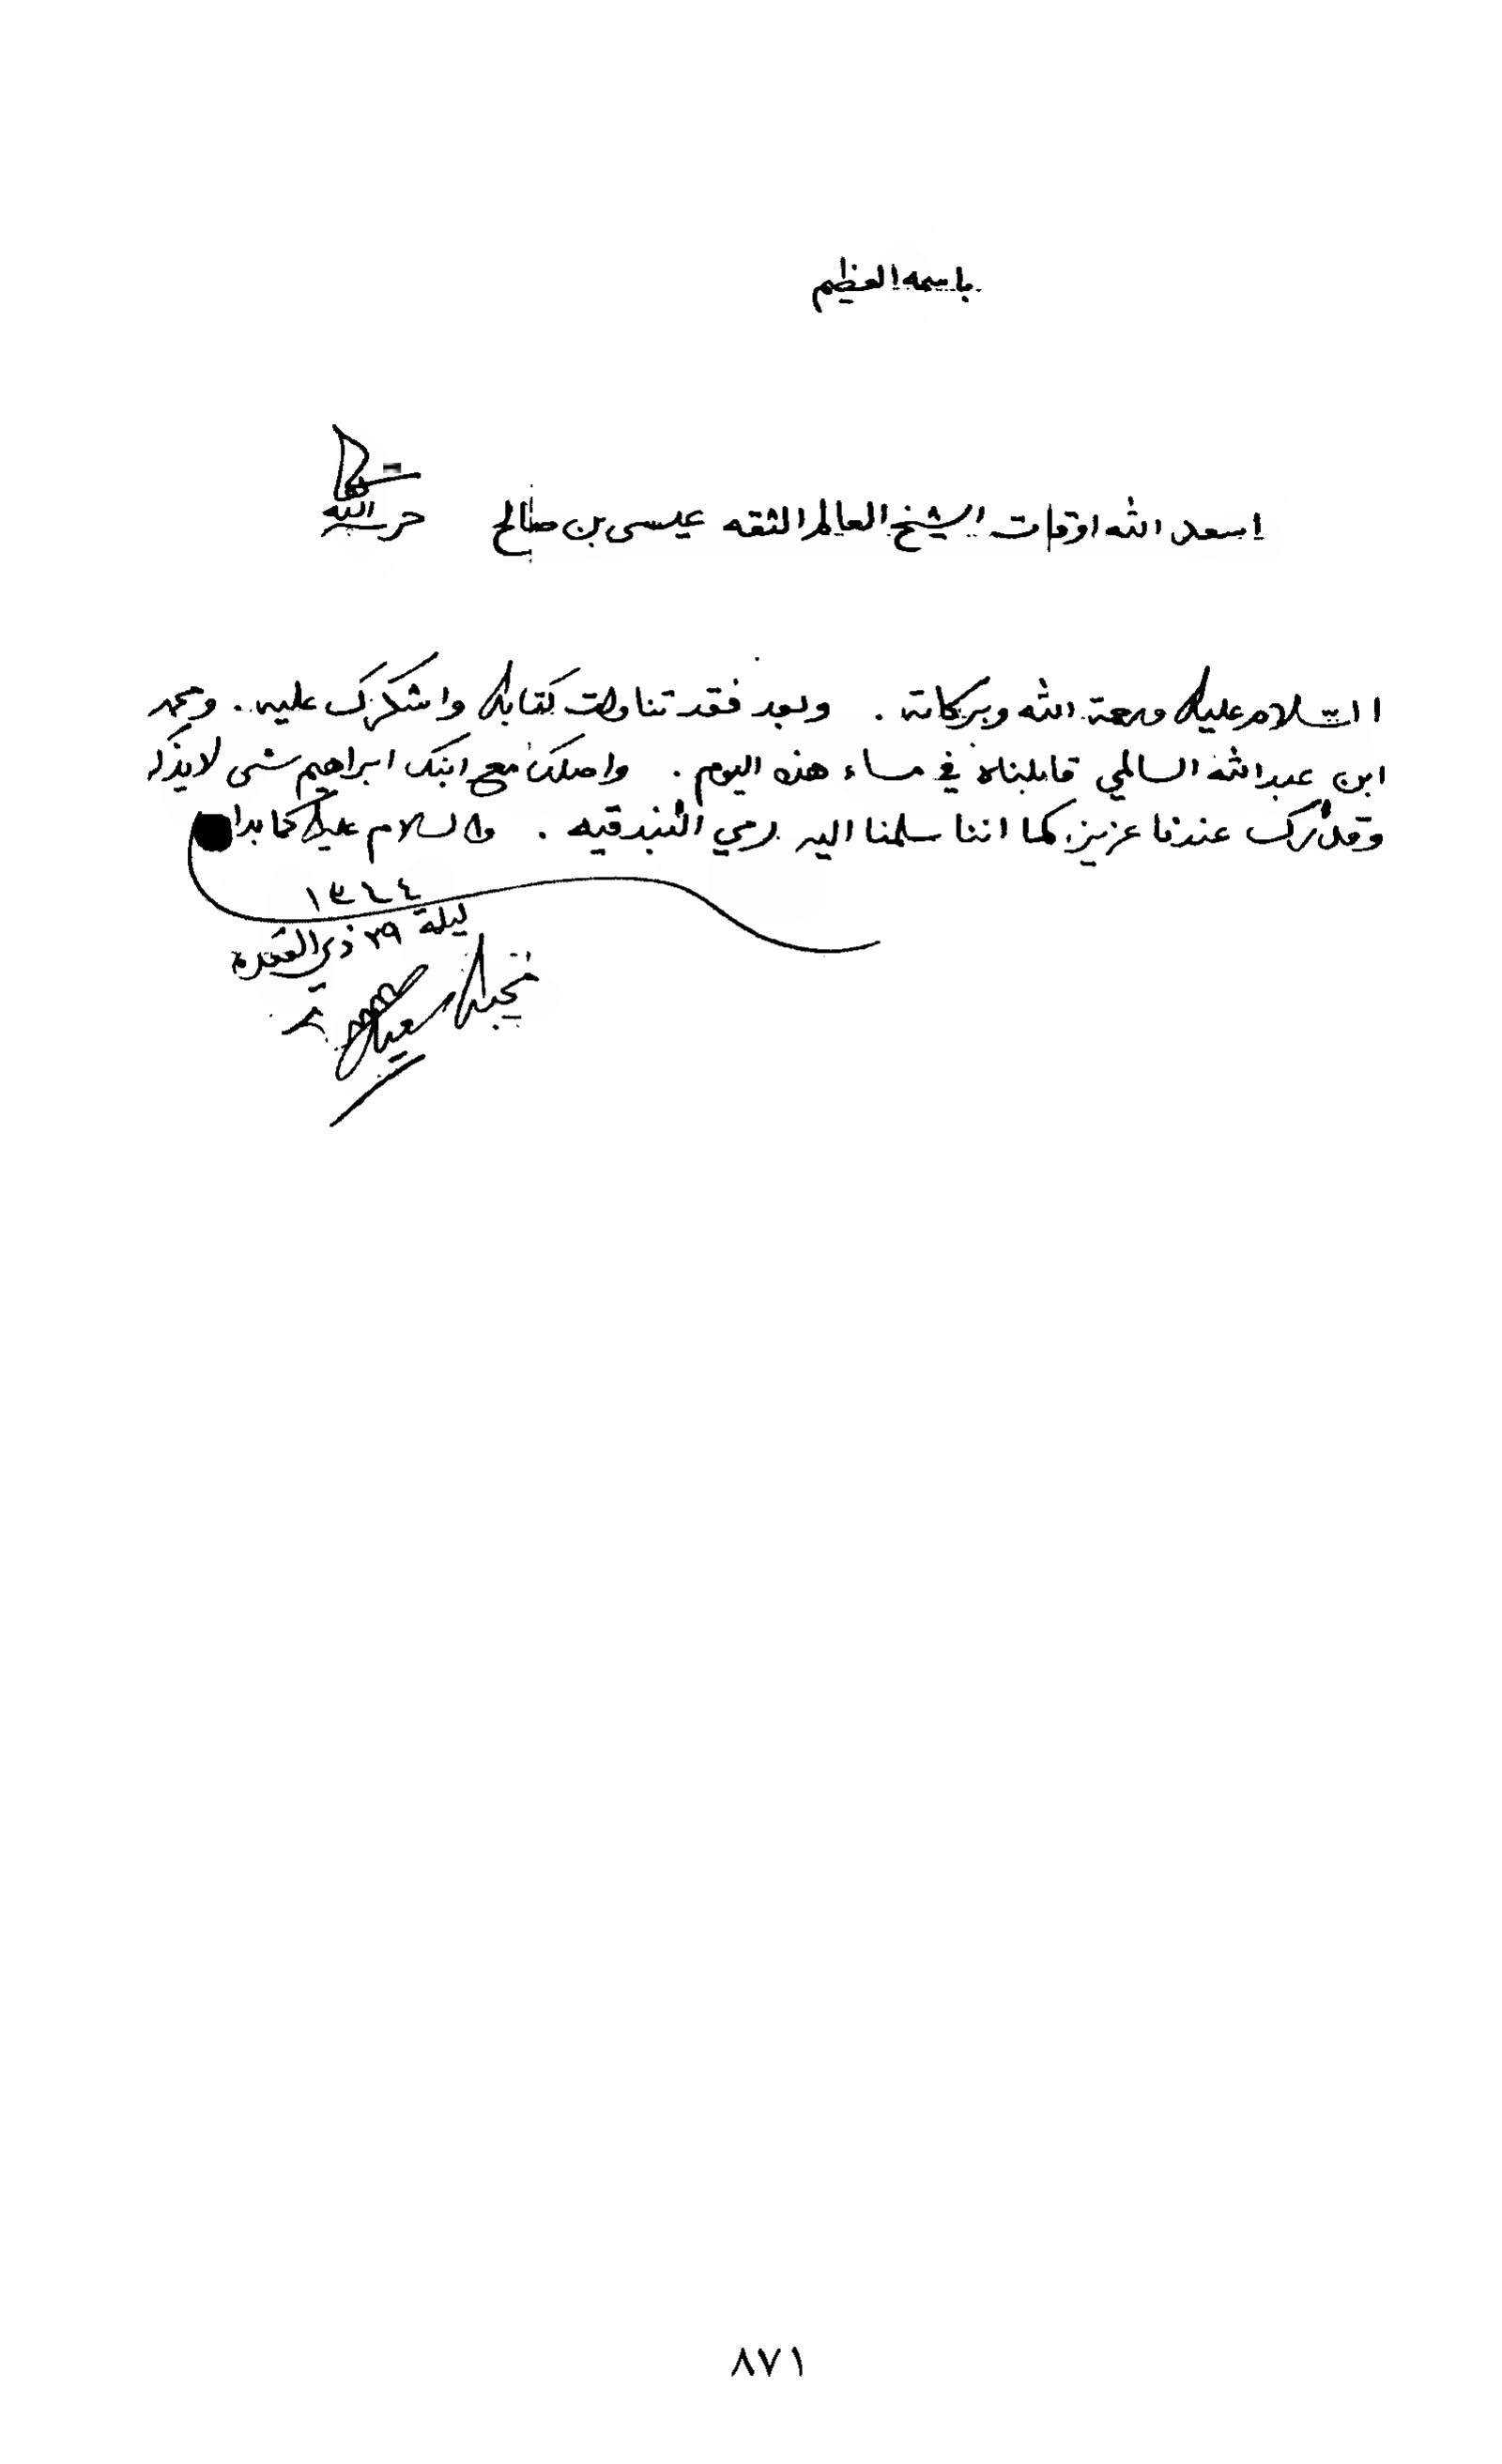 باسمه العظيم
اسعد الله اوقات الشيخ العالم الثقه عيسى بن صالح
حرسه الله
السلام عليك ورحمة الله وبركاته . وبعد فقد تناولت كتابك واشكرك عليه . ومحمد
ابن عبدالله السالمي قابلناه في مساء هذه اليوم . واصلك مع ابنك ابراهيم شى لا يذكر
وقدرك عندنا عزيز، كما اننا سلمنا اليه رمي البندقيه . والسلام عليك كما بدا
١٣٤٤
ليلة ٢٩ ذي القعدة
سعيد
٨٧١